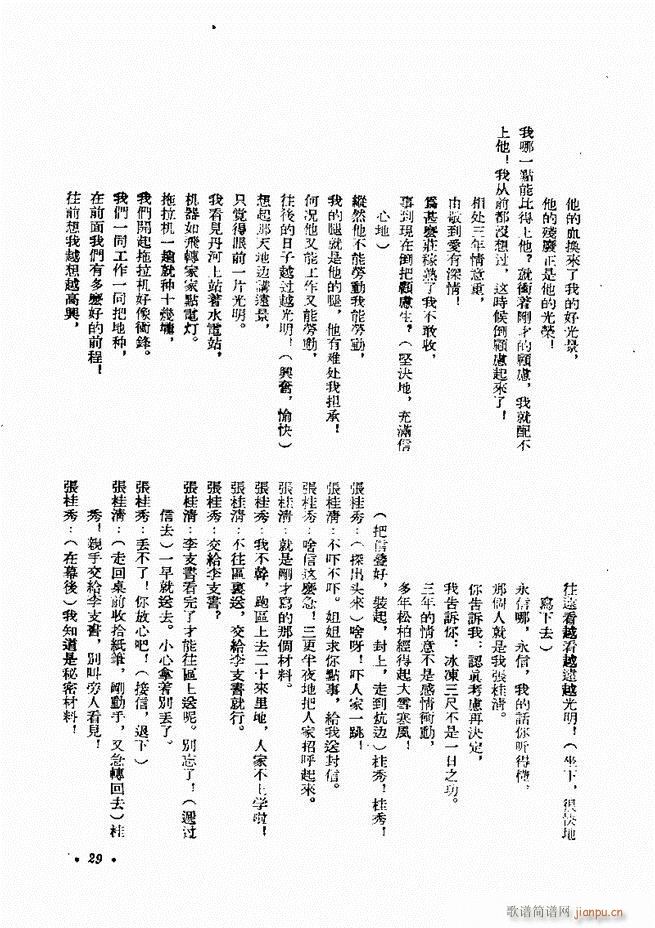 他的血換來了我的好光景，
他的殘廢正是他的光榮！
我哪一點能比得上他？就衝着剛才的顧慮，我就配不
上他！我从前都没想过，这時候倒顧慮起來了！
相处三年情意重，
由敬到愛有深情！
爲甚麽莊稼熟了我不敢收，
事到現在倒把顧慮生？（堅決地，充滿信
心地）
縱然他不能勞動我能勞動，
我的腿就是他的腿，他有难处我担承！
何况他又能工作又能勞動，
往後的日子越过越光明！（興奮，愉快）
想起那天地边講遠景，
只覺得眼前一片光明。
我看見丹河上站着水電站，
机器如飛轉家家點電灯。
拖拉机一趟就种十幾壠，
我們開起拖拉机好像衝鋒。
我們一同工作一同把地种，
在前面我們有多麽好的前程！
往前想我越想越高興，
往遠看越看越遠越光明！（坐下，很快地
寫下去）
永信哪，永信，我的話你听得慬，
那個人就是我張桂清。
你告訴我：認眞考慮再决定，
我告訴你：冰凍三尺不是一日之功。
三年的情意不是感情衝動，
多年松柏經得起大雪寒風！
（把信叠好，裝起，封上，走到炕边）桂秀！桂秀！
張桂秀：（探出头來）啥呀！吓人家一跳！
張桂清：不吓不吓。姐姐求你點事，給我送封信。
張桂秀：啥信这麽急！三更半夜地把人家招呼起來。
張桂清：就是剛才寫的那個材料。
張桂秀：我不幹，跑區上去二十來里地，人家不上学啦！
張桂清：不往區裏送，交給李支書就行。
張桂秀：交給李支書？
張桂清：李支書看完了才能往區上送呢。别忘了！（遞过
信去）一早就送去。小心拿着别丢了。
張桂秀：丢不了！你放心吧！（接信，退下）
張桂清：（走回桌前收拾紙筆，剛動手，又急轉回去）桂
秀！親手交給李支書，别叫旁人看見！
張桂秀：（在幕後）我知道是秘密材料！
· 29 ·
歌谱简谱网
jianpu.cn